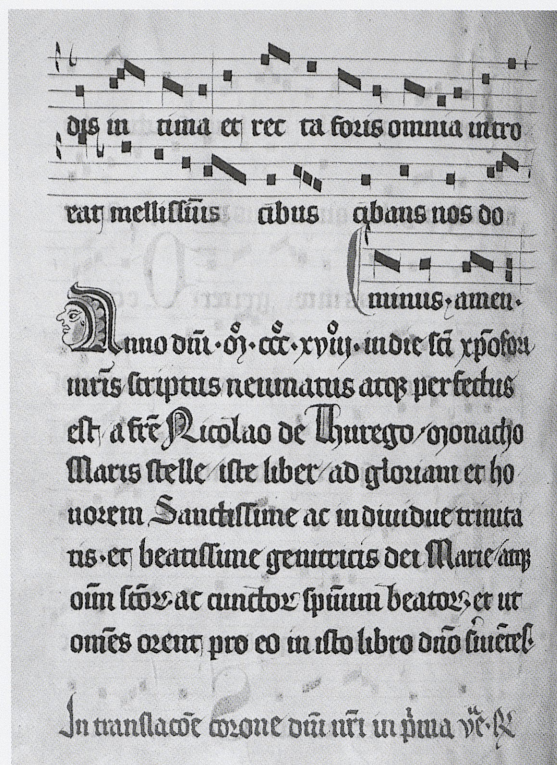 dis in tima et rec ta foris omnia intro
eat mellissim̄s cībus cibans nos do
minus · amen ·
Anno dn̄i · m̊ · ccc̄ · xviij · in die sc̄i xp̄ofori
mr̄is scriptus neumatus atqꝫ perfectus
est a fr̄e Nicolao de Thurego / monacho
Maris stelle / iste liber / ad gloriam et ho
norem Sanctissime ac indiuidue trinita
tis · et beatissime genitricis dei Marie / atqꝫ
oīm sc̄oꝝ · ac cunctoꝝ sp̄uum beatoꝝ et ut
om̄es orent pro eo in isto libro dn̄o
In translacōe corone dn̄i nr̄i in p̄ma